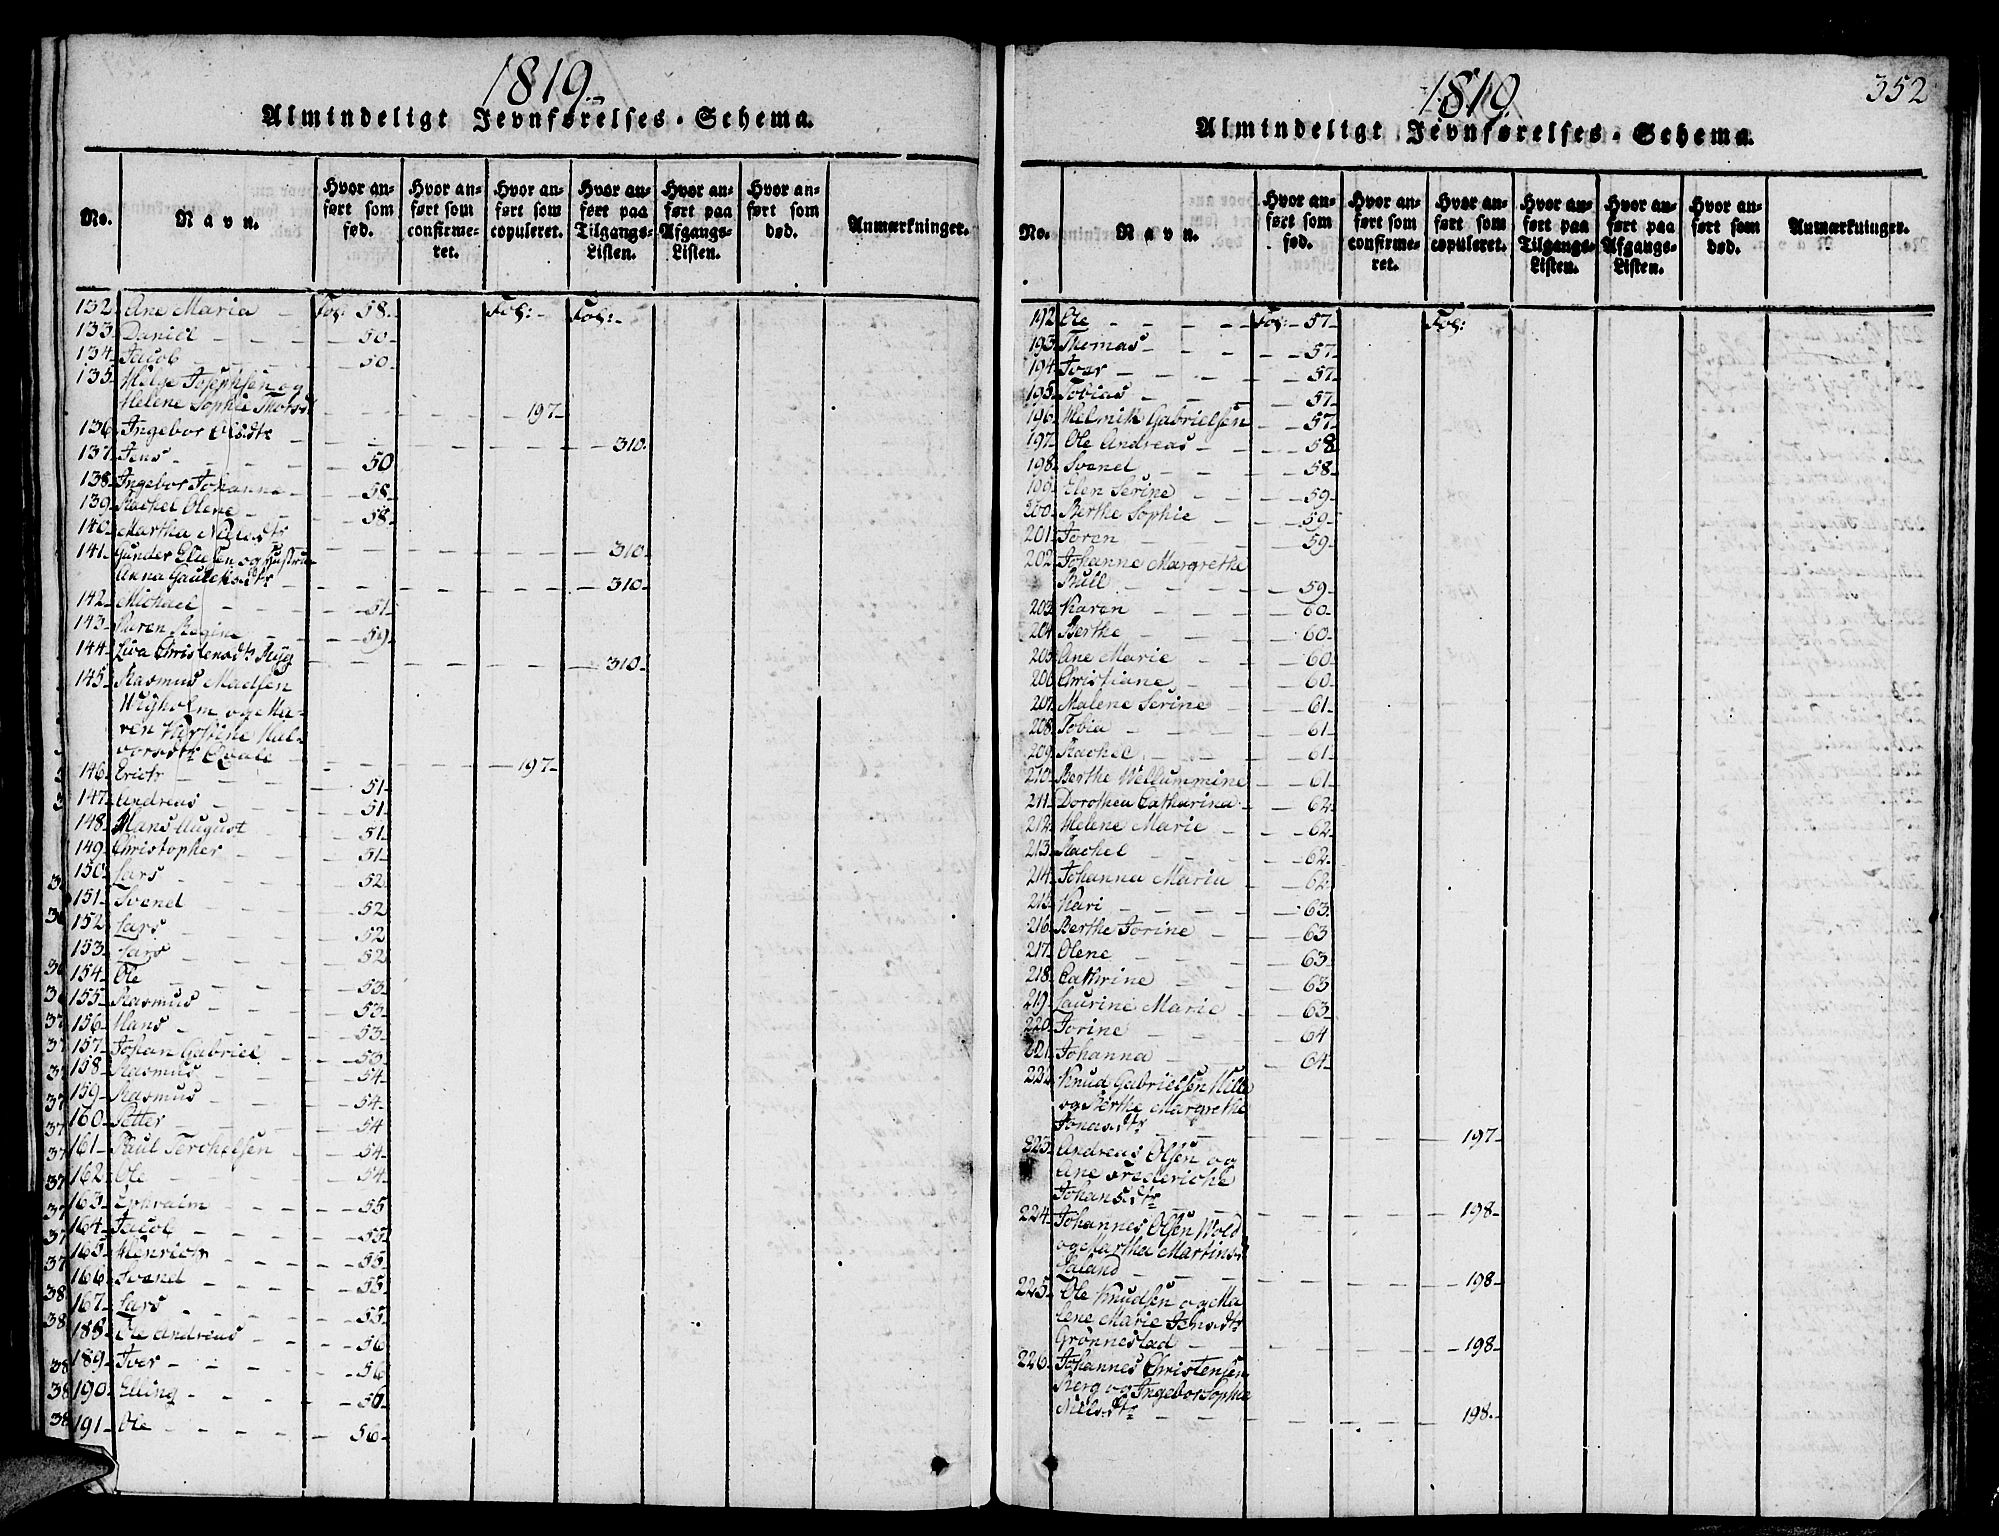 1819.
Almindeligt Jevnførelses-Schema.
No. Navn. Hvor anført som fød. Hvor anført som confirmeret. Hvor anført som copuleret. Hvor anført paa Tilgangs-Listen. Hvor anført paa Afgangs-Listen. Hvor anført som død. Anmærkninger.
132. Ane Maria - Fol: 58. Fol: - Fol: -
133. Daniel - - - 50-
134. Jacob - - - 50.
135. Helge Josephsen og
Helene Sophie Thorsd - - - 197-
136. Ingebor Olsdtr - - - 310.
137. Jens - - - 50
138. Ingebor Johanne - 58-
139. Rachel Olene - - 58-
140. Martha Nilsdtr - - - 310-
141. Gunder Eliesen og Hustrue
Anna Gautesdtr - - - 310-
142. Michael - - - 51-
143. Karen Regine - - 59-
144. Liva Christensdtr - - - 310-
145. Rasmus Madsen
og Ma-
ren Kirstine Hal-
vorsdtr Qvale - - - 197-
146. Erich - - - 51-
147. Andreas - - - 51-
148. Hans August - - 51-
149. Christopher - - 51-
150. Lars - - - 52
151. Svend - - - 52
152. Lars - - - 52
153. Lars - - - 52
154. Ole - - - 53-
155. Rasmus - - - 53-
156. Hans - - - 53-
157. Johan Gabriel - - 53-
158. Rasmus - - - 54-
159. Rasmus - - - 54-
160. Petter - - - 54
161. Paul Terchelsen - 54-
162. Ole - - - 54-
163. Ephraim - - - 55
164. Jacob - - - 55-
165. Henrich - - - 55-
166. Svend - - - 55-
167. Lars - - - 55-
188. Ole Andreas - - 56
189. Iver - - - 56-
190. Elling - - - 56-
191. Ole - - - 56-
1819.
352
Almindeligt Jevnførelses-Schema.
No. Navn. Hvor anført som fød. Hvor anført som confirmeret. Hvor anført som copuleret. Hvor anført paa Tilgangs-Listen. Hvor anført paa Afgangs-Listen. Hvor anført som død. Anmærkninger.
192. Ole - - - Fol: - 57- Fol:
193. Thomas - - - 57-
194. Iver - - - 57-
195. Tobias - - - 57-
196. Helmik Gabrielsen - 57-
197. Ole Andreas - - 58
198. Svend - - - 58-
199. Elen Serine - - 59-
200. Berthe Sophie - - 59-
201. Joren - - - 59-
202. Johanne Margrethe
Bull - - - 59-
203. Karen - - - 60-
204. Berthe - - - 60-
205. Ane Marie - - 60
206. Christiane - - 60-
207. Malene Serine - - 61-
208. Tobia - - - 61-
209. Rachel - - - 61-
210. Berthe Wellummine - 61-
211. Dorothea Catharina - 62-
212. Helene Marie - - 62-
213. Rachel - - - 62-
214. Johanna Maria - 62-
215. Kari - - - 63-
216. Berthe Jorine - - 63
217. Olene - - - 63-
218. Cathrine - - - 63
219. Laurine Marie - - 63-
220. Jorine - - - 64
221. Johanna - - - 64-
222. Knud Gabrielsen Hille
og Berthe Margrethe
Jonasdtr - - - 197-
223. Andreas Olsen og
Ane Frederiche
Johansdtr - - - 198-
224. Johannes Olsen Wold
og Martha Martinsd
Laland - - - 198-
225. Ole Knudsen og Ma
lene Marie Jensdtr
Grønnestad - - - 198-
226. Johannes Christensen
Berg og Ingebor Sophie
Nielsdtr - - - 198-